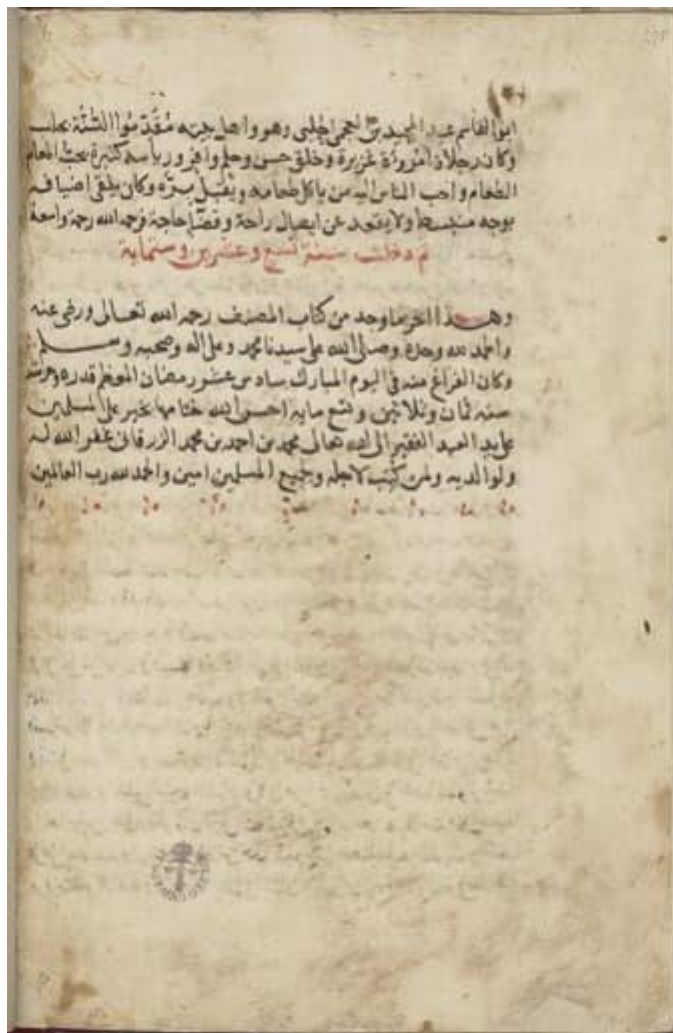 ابو القاسم عبد المجيد بن العجمي الحلبي وهو واهل بيته مقدموا السنة بحلب
وكان رجلا ذا مروة غزيرة وخلق حسن وحلم وافر ورياسة كثيرة يحب اطعام
الطعام واحب الناس اليه من ياكل طعامه ويقبل بره وكان يلقى اضيافه
بوجه منبسط ولا يقعد عن ايصال راحة وقضا حاجة فرحمه الله رحمة واسعة
ثم دخلت سنة تسع وعشرين وستماية
وهذا اخر ما وجد من كتاب المصنف رحمه الله تعالى ورضى عنه
والحمد لله وحده وصلى الله على سيدنا محمد وعلى اله وصحبه وسلم
وكان الفراغ منه في اليوم المبارك سادس عشور رمضان المعظم قدره وحرمته
سنه ثمان وثلاثين وتسع مايه احسن الله ختامها بخير على المسلمين
على يد العبد الفقير الى الله تعالى محمد بن احمد بن محمد الزرقاني غفر الله له
ولوالديه ولمن كتب لاجله وجميع المسلمين امين والحمد لله رب العالمين